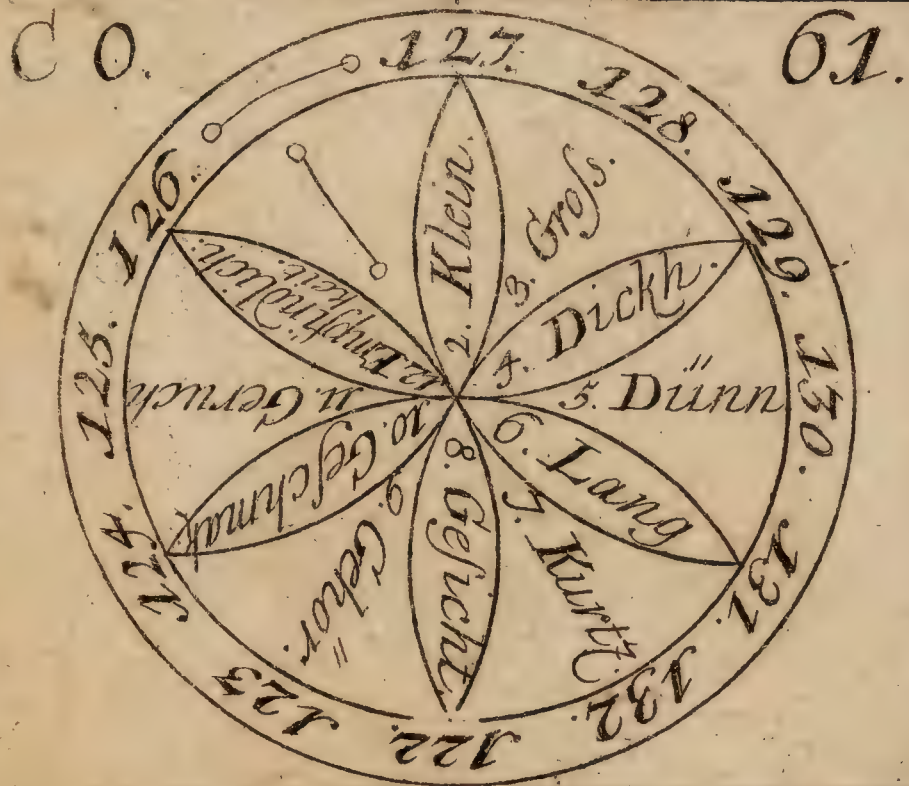 C O.
61.
127.
128.
129.
130.
131.
132.
122.
123
124.
125.
126.
2. Klein.
3. Groſs.
4. Dickh.
5. Dünn
6. Lang
7. Kurtz.
8. Geſicht.
9. Gehör.
10. Geſchmak
11. Geruch
12. Empfindlich:
keit.